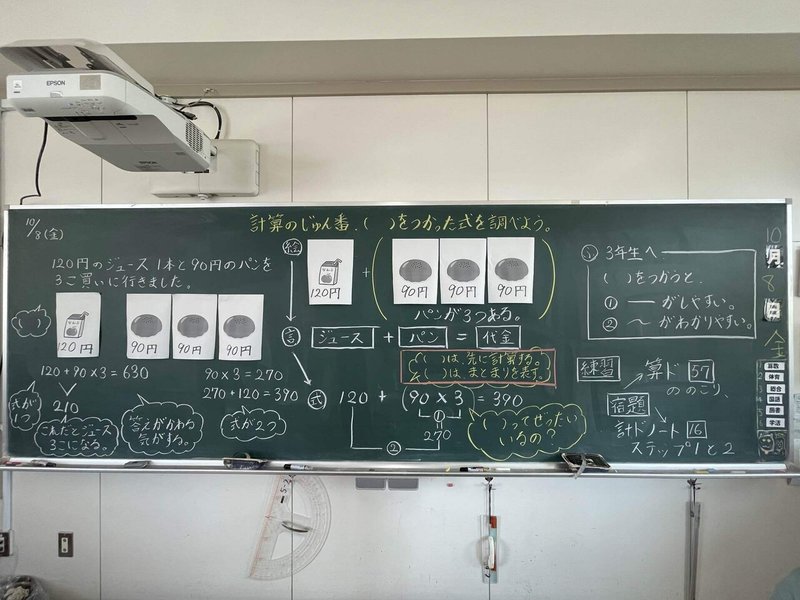 EPSON
EPSON
計算のじゅん番、( )をつかった式を調べよう。
10/8(金)
120円のジュース1本と90円のパンを
3こ買いに行きました。
120円
90円
90円
90円
120+90×3=630
210
90×3=270
270+120=390
式が1つ
これだとジュース
3こになる。
答えがかわる
気がする。
式が2つ
絵
120円
+
90円
90円
90円
パンが3つある。
言
ジュース + パン = 代金
( )は先に計算する。
( )はまとまりを表す。
式
120 + (90×3) = 390
①
270
②
( )ってぜったい
いるの?
3年生へ
( )をつかうと、
① ーがしやすい。
② 〜がわかりやすい。
練習
算ド 57
ののこり、
宿題
計ドノート 16
ステップ1と2
10
月
8
金
算数
体育
総合
国語
図書
学活